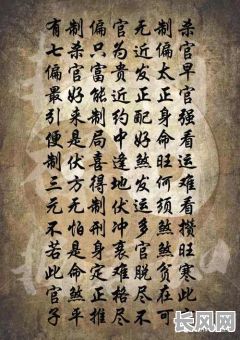 杀官早官强看运难看攒旺寒此
制偏太正身偏命旺何须煞贫在可
无近发正配好煞发运多官脱尽不
官为贵近约中逢地伏冲衰难格尽
偏只富能制局喜得制刑身定正推
制杀官好来是伏方无怕是命煞平
有七偏最引便制三元不若此官子
长风网